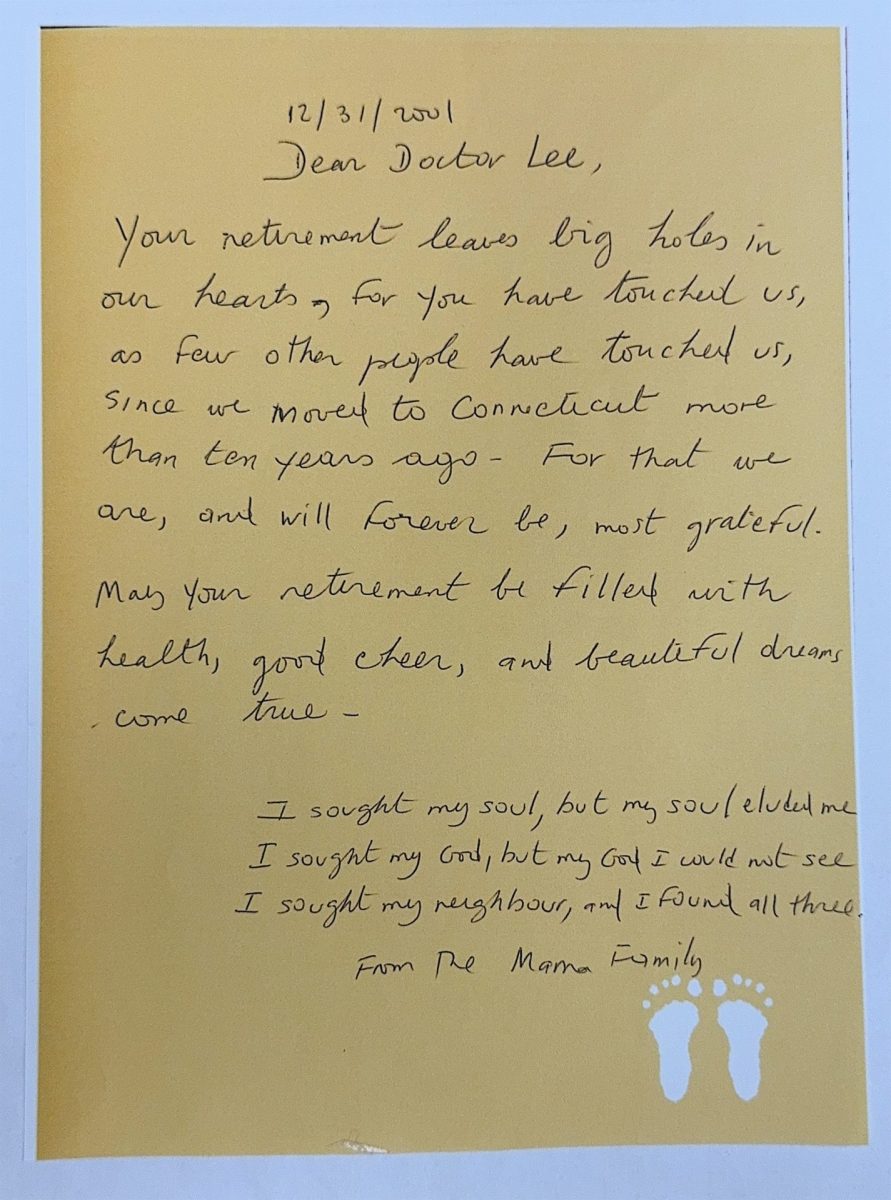 12/31/2001
Dear Doctor Lee,
Your retirement leaves big holes in
our hearts, for you have touched us,
as few other people have touched us,
since we moved to Connecticut more
than ten years ago - For that we
are, and will forever be, most grateful.
May your retirement be filled with
health, good cheer, and beautiful dreams
come true -
I sought my soul, but my soul eluded me
I sought my God, but my God I could not see
I sought my neighbour, and I found all three.
From The Mama Family